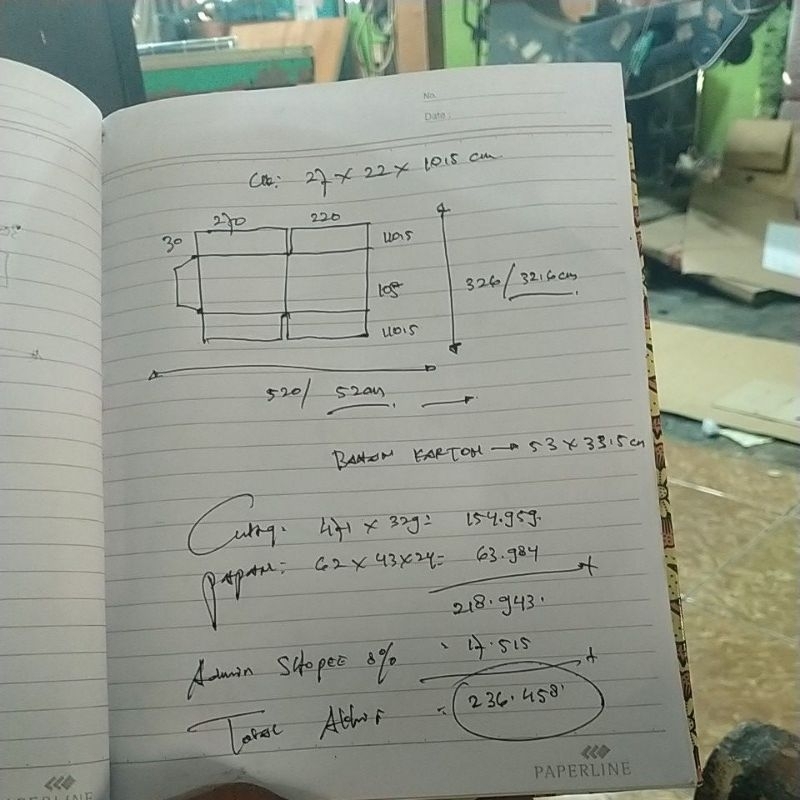 No.
Date:
Uk: 27 x 22 x 10.5 cm
270 220
30
110.5
105
326/32.6 cm
110.5
520/ 52 cm
BAHAN KARTON → 53 x 33.5 cm
Cutting: 471 x 329 = 154.959.
PAPAN = 62 x 43 x 24 = 63.984
+
218.943.
Admin SHOPEE 8% = 17.515
+
Total Akhir = 236.458
PAPERLINE